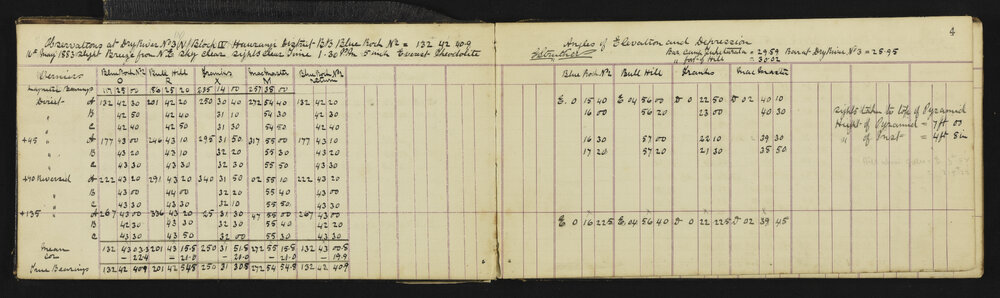 Observations at Dry River No 3 (N) Block IV Hawea District B.B Blue Rock No 2 = 132 42 40.9
16th May 1883 Slight Breeze from N.E Sky clear Sights clear Time 1.30 P.M. 5 inch Everest Theodolite
Verniers Blue Rock No 2 Bull Hill Franks MacMaster Blue Rock No 2
O R X M return
Magnetic Bearings 117 25 00 186 25 20 235 14 00 257 35 00
Direct A 132 42 30 201 42 20 250 30 40 272 54 40 132 42 20
" B 42 50 42 40 31 10 54 30 42 30
" C 42 40 42 50 31 30 54 50 42 40
+45 A 177 43 00 246 43 10 295 31 50 317 55 00 177 43 10
" B 43 20 43 10 32 20 55 30 43 20
" C 43 30 43 30 32 30 55 50 43 30
+90 Reversed A 222 43 20 291 43 20 340 31 50 02 55 10 222 43 20
" B 43 00 44 00 32 20 55 40 43 00
" C 43 30 43 30 32 10 55 50 43 30
+135 A 267 43 00 336 43 20 25 31 30 47 55 00 267 43 00
" B 42 30 43 30 32 30 55 40 42 20
" C 43 30 43 50 32 00 55 30 43 30
Mean 132 43 03.3 201 43 15.5 250 31 51.8 272 55 15.8 132 43 00.8
Cor - 22.4 - 21.0 - 21.0 - 21.0 - 19.9
True Bearings 132 42 40.9 201 42 54.5 250 31 30.8 272 54 54.8 132 42 40.9
4
Angles of Elevation and Depression
Bar at Dry River No 3 = 28.95
" foot of Hill = 30.02
Blue Rock No 2 Bull Hill Franks MacMaster
E 0 15 40 E 04 56 00 D 0 22 50 D 02 40 10
16 00 56 20 23 00 40 30
Sights taken to top of Pyramid
Height of Pyramid = 7 ft
16 30 57 00 22 10 39 30
" of Inst = 4 ft 8 in
17 20 57 20 21 30 38 50
E 0 16 22.5 E 04 56 40 D 0 22 22.5 D 02 39 45